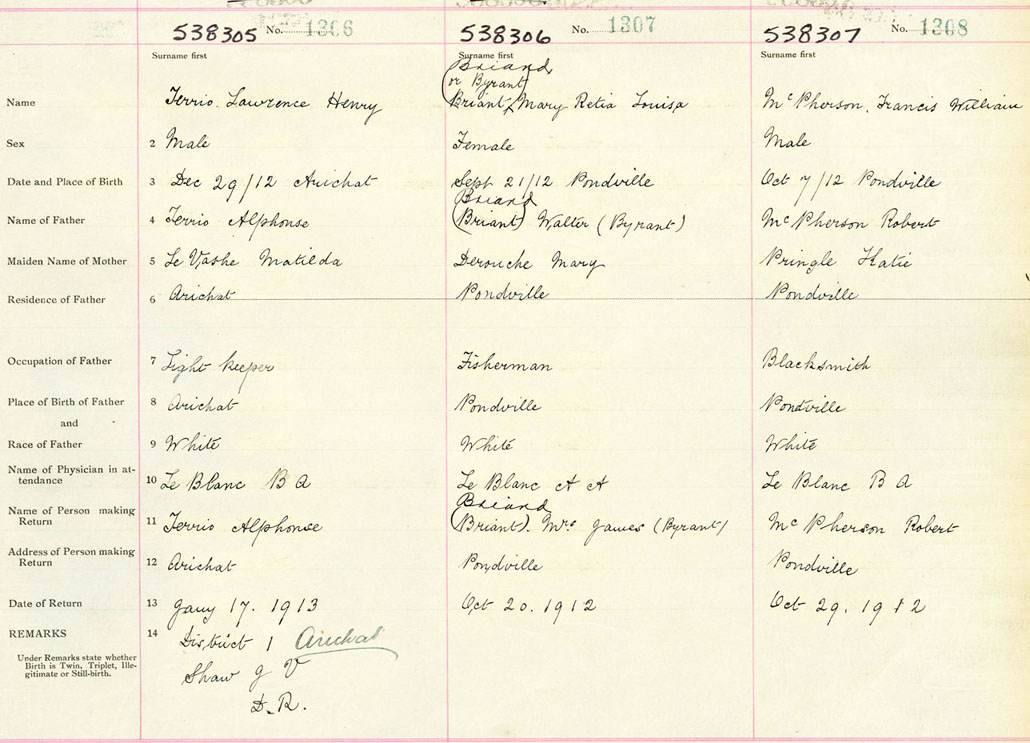 538305 No. 1306 538306 No. 1307 538307 No. 1308
Surname first Surname first Surname first
Briand
or Byrant
Name Terrio. Lawrence Henry Briant, Mary Retia Louisa McPherson, Francis William
Sex 2 Male Female Male
Date and Place of Birth 3 Dec 29/12 Arichat Sept 21/12 Pondville Oct 7/12 Pondville
Briand
Name of Father 4 Terrio Alphonse (Briant) Walter (Byrant) McPherson Robert
Maiden Name of Mother 5 Le Vashe Matilda Derouche Mary Pringle Katie
Residence of Father 6 Arichat Pondville Pondville
Occupation of Father 7 Light keeper Fisherman Blacksmith
Place of Birth of Father 8 Arichat Pondville Pondville
and
Race of Father 9 White White White
Name of Physician in at-
tendance 10 Le Blanc B A Le Blanc A A Le Blanc B A
Briand
Name of Person making
Return 11 Terrio Alphonse (Briant). Mrs James (Byrant) McPherson Robert
Address of Person making
Return 12 Arichat Pondville Pondville
Date of Return 13 Jany 17. 1913 Oct 20. 1912 Oct 29. 1912
REMARKS 14 District 1 Arichat
Under Remarks state whether
Birth is Twin, Triplet, Ille-
gitimate or Still-birth.
Shaw J V
D.R.